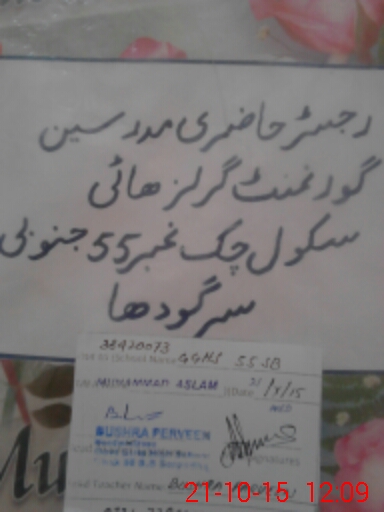 رجسٹر حاضری مدرسین
گورنمنٹ گرلز ھائی
سکول چک نمبر 55 جنوبی
سرگودھا
38420073
School Name GGHS 55 SB
MUHAMMAD ASLAM Date 21/X/15
WED
BUSHRA PERVEEN
Teacher Name
21-10-15 12:09